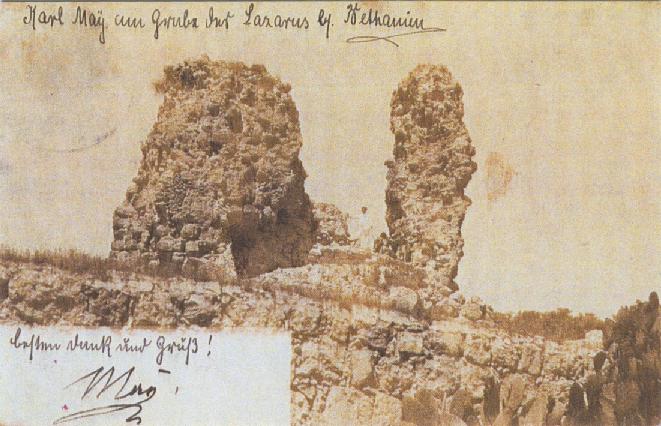 Karl May am Grabe des Lazarus bei Bethanien
besten Dank und Gruß!
May.